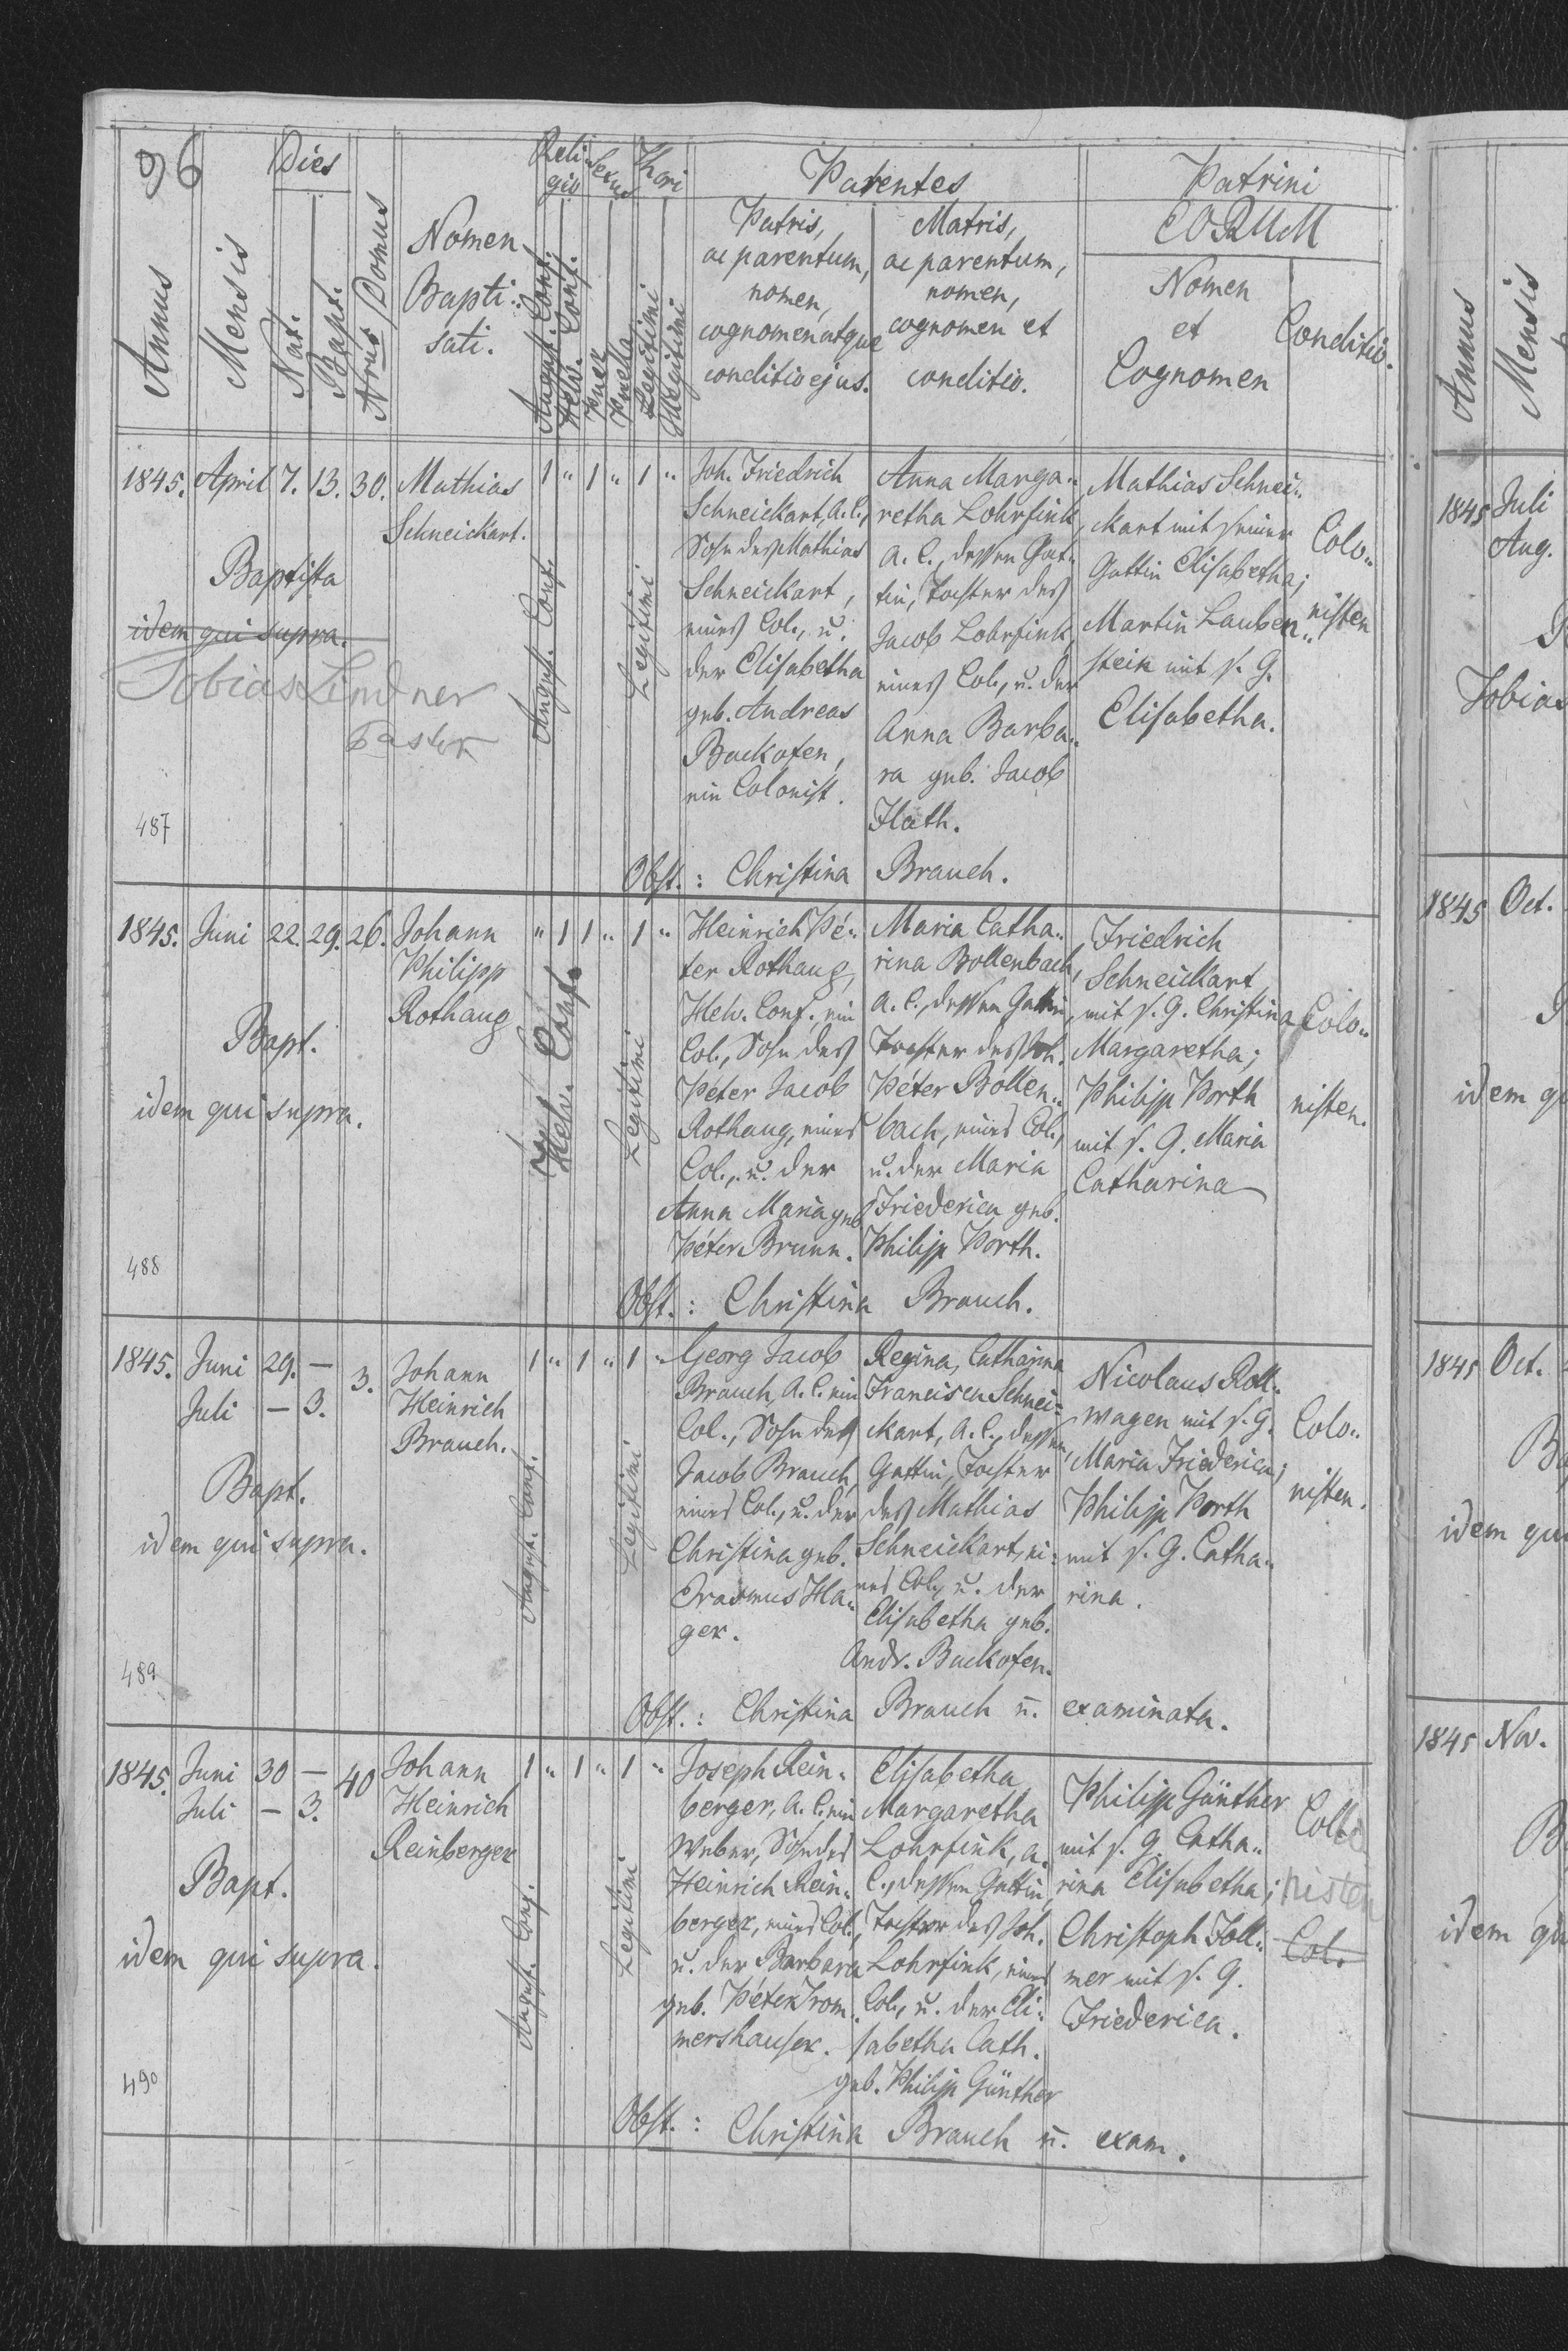 96
Dies
Reli-
gio
Sexus
Thori
Parentes
Patrini
Annus
Mensis
Nat.
Bapt.
Nrus Domus
Nomen
Bapti-
sati.
August. Conf.
Helv. Conf.
Puer
Puella
Legitimi
Illegitimi
Patris,
ac parentum,
nomen,
cognomen atque
conditio ejus.
Matris,
ac parentum,
nomen,
cognomen et
conditio.
EORUM
Nomen
et
Cognomen
Conditio.
1845. April 7. 13. 30. Mathias
Schneickart.
1 " 1 " 1 "
Baptista
idem qui supra.
Tobias Lindner
Pastor
487
August. Conf.
Legitimi
Joh. Friedrich
Schneickart, A. C.,
Sohn des Mathias
Schneickart,
eines Col., u.
der Elisabetha
geb. Andreas
Backofen,
ein Colonist.
Anna Marga-
retha Lohrfink,
A. C., dessen Gat-
tin, Tochter des
Jacob Lohrfink,
eines Col., u. der
Anna Barba-
ra geb. Jacob
Flath.
Mathias Schnei-
ckart mit seiner
Gattin Elisabetha;
Martin Lauben-
stein mit s. G.
Elisabetha.
Colo-
nisten
Obst.: Christina Brauch.
1845. Juni 22. 29. 26. Johann
Philipp
Rothaug
" 1 1 " 1 "
Bapt.
idem qui supra.
488
Helv. Conf.
Legitimi
Heinrich Pé-
ter Rothaug,
Helv. Conf., ein
Col., Sohn des
Péter Jacob
Rothaug, eines
Col., u. der
Anna Maria geb.
Péter Brunn.
Maria Catha-
rina Bollenbach,
A. C., dessen Gattin,
Tochter des Joh.
Péter Bollen-
bach, eines Col.,
u. der Maria
Friederica geb.
Philipp Porth.
Friedrich
Schneickart
mit s. G. Christina
Margaretha;
Philipp Porth
mit s. G. Maria
Catharina
Colo-
nisten.
Obst.: Christina Brauch.
1845. Juni 29. — 3. Johann
Juli — 3. Heinrich
Brauch.
1 " 1 " 1 "
Bapt.
idem qui supra.
489
August. Conf.
Legitimi
Georg Jacob
Brauch, A. C. ein
Col., Sohn des
Jacob Brauch,
eines Col., u. der
Christina geb.
Erasmus Ha-
ger.
Regina Catharina
Francisca Schnei-
ckart, A. C., dessen
Gattin, Tochter
des Mathias
Schneickart, ei-
nes Col., u. der
Elisabetha geb.
Andr. Backofen.
Nicolaus Roll-
wagen mit s. G.
Maria Friederica;
Philipp Porth
mit s. G. Catha-
rina.
Colo-
nisten.
Obst.: Christina Brauch n̄. examinata.
1845. Juni 30 — 40 Johann
Juli — 3. Heinrich
Reinberger
1 " 1 " 1 "
Bapt.
idem qui supra.
490
August. Conf.
Legitimi
Joseph Rein-
berger, A. C. ein
Weber, Sohn des
Heinrich Rein-
berger, eines Col.,
u. der Barbara
geb. Péter Trom-
mershauser.
Elisabetha
Margaretha
Lohrfink, A.
C., dessen Gattin,
Tochter des Joh.
Lohrfink, eines
Col., u. der Eli-
sabetha Cath.
geb. Philipp Günther
Philipp Günther
mit s. G. Catha-
rina Elisabetha;
Christoph Foll-
mer mit s. G.
Friederica.
nisten
Col.
Obst.: Christina Brauch n̄. exam.
Annus
Mensis
1845 Juli
Aug.
Tobias
1845 Oct.
idem
1845 Oct.
idem
1845 Nov.
idem